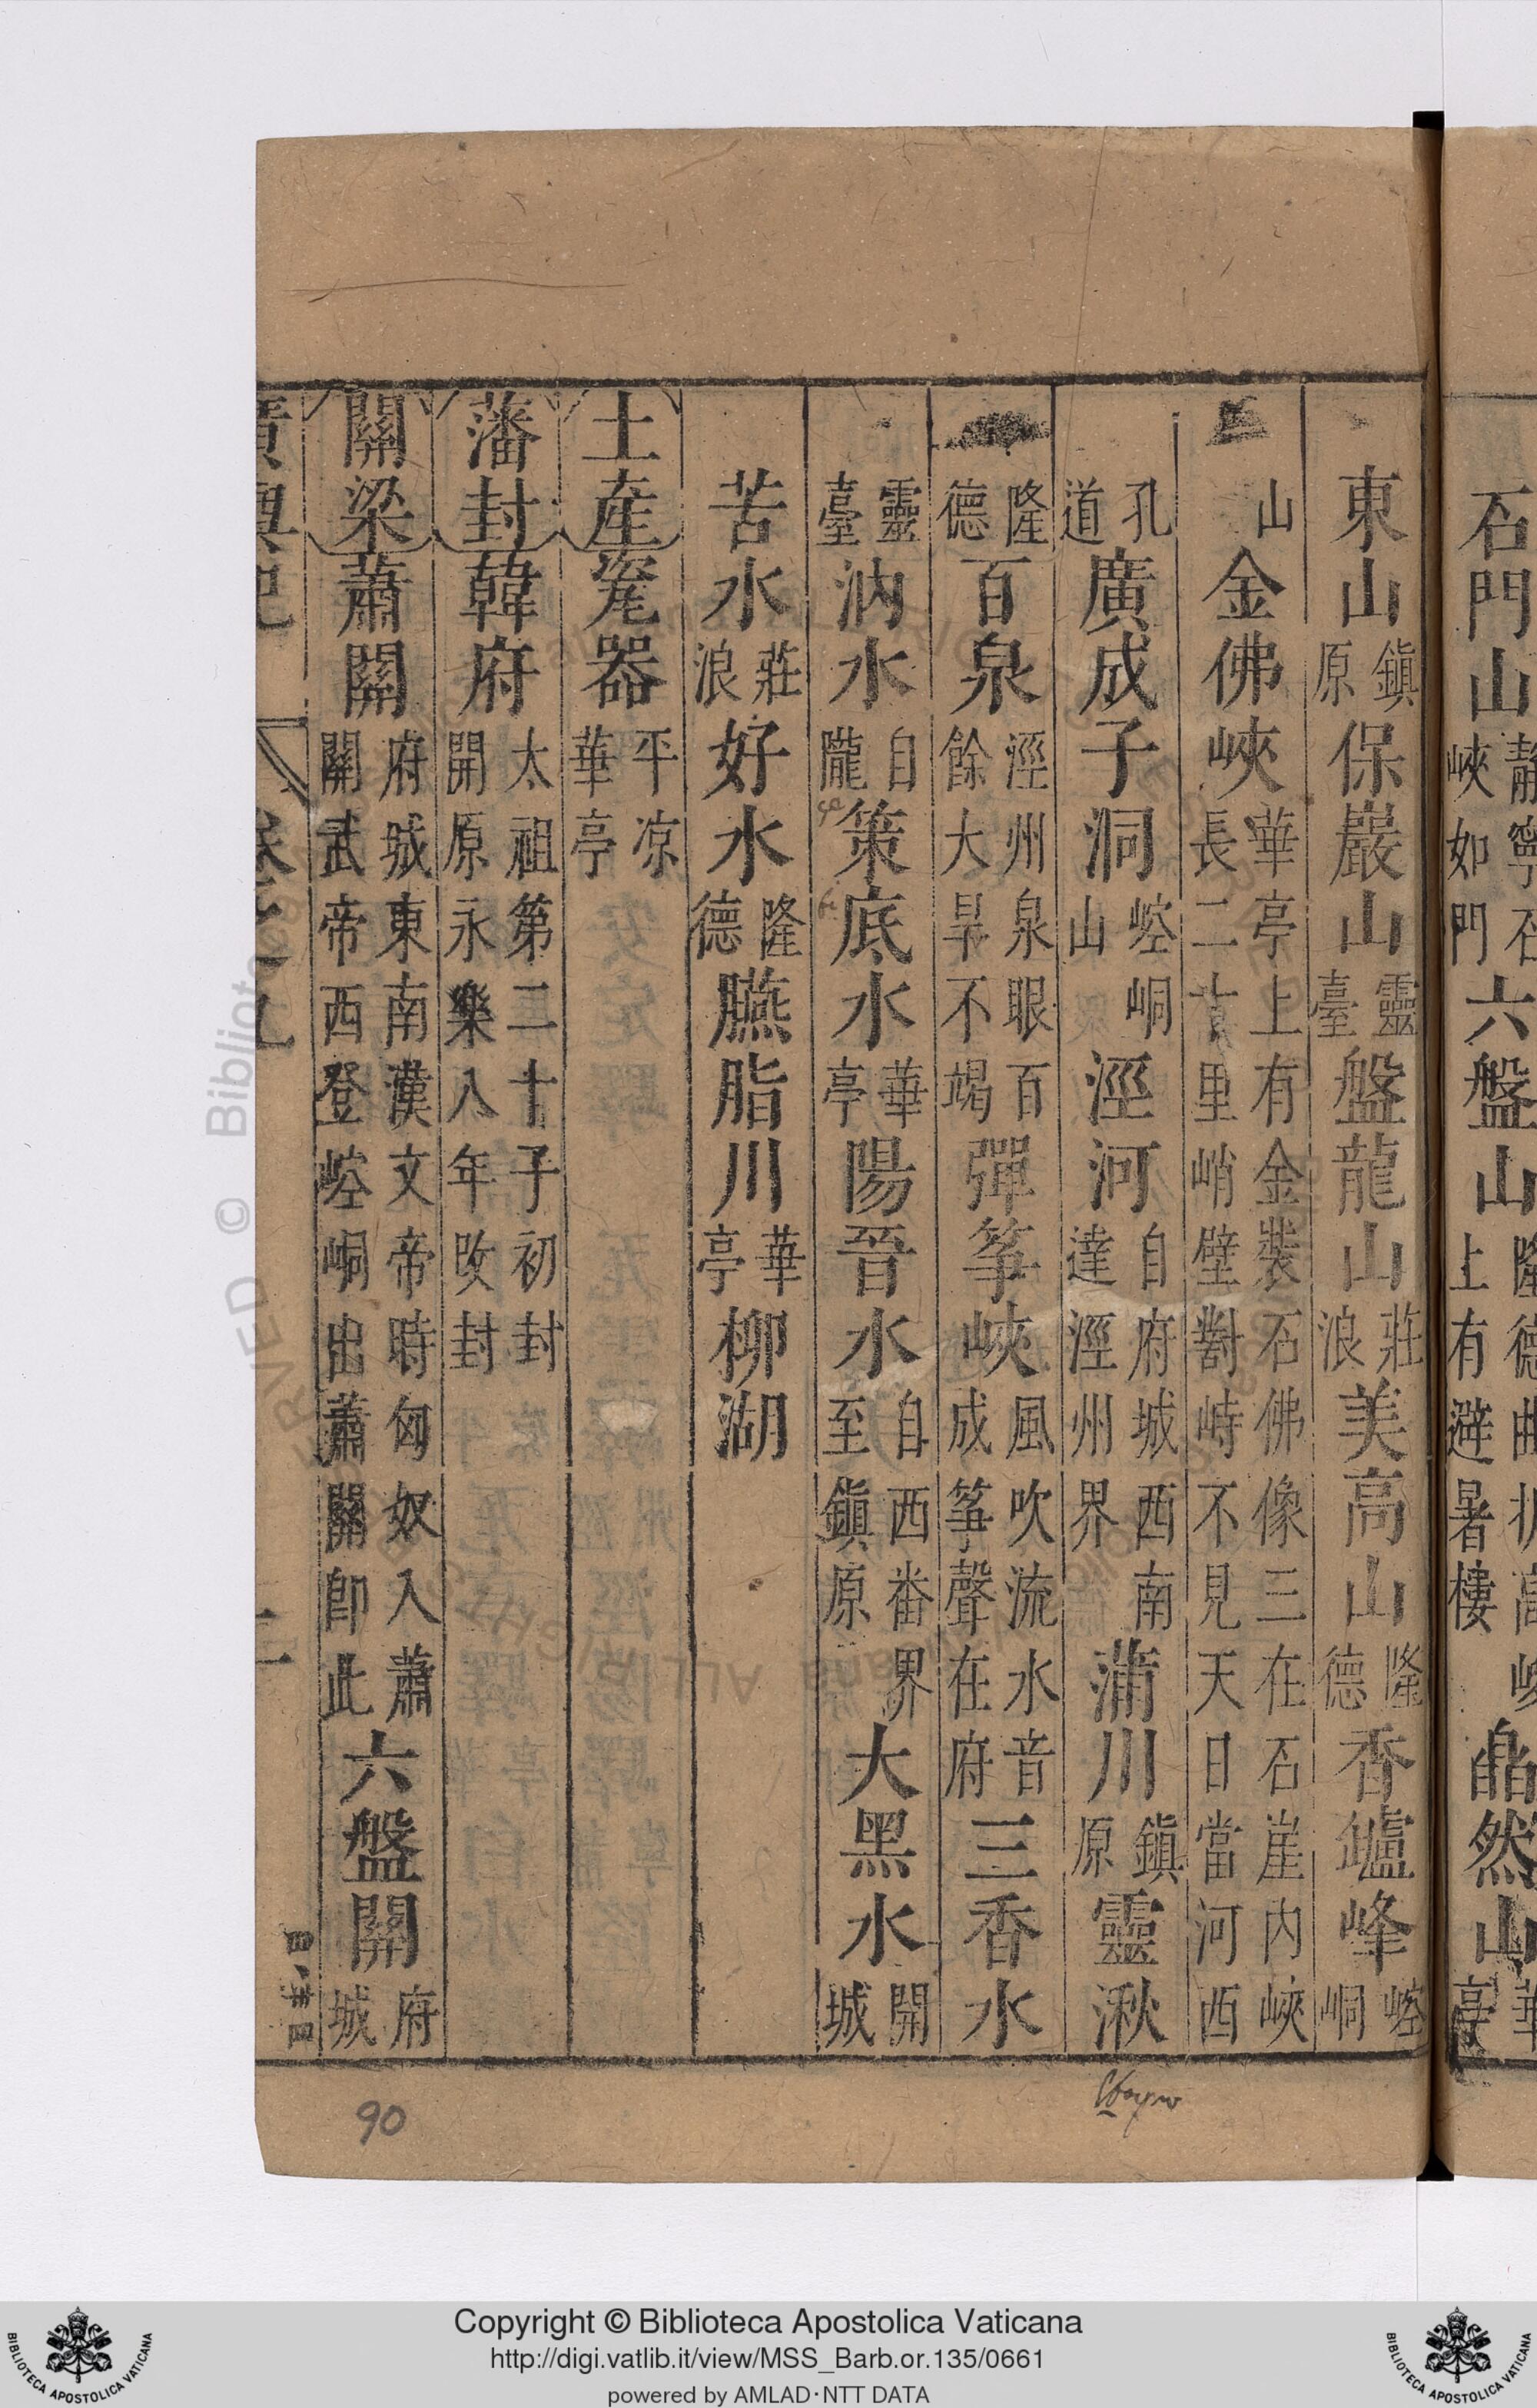 石門山 靜寧石峽如門 六盤山 隆德曲折高峻上有避暑樓 皛然山 華亭
東山 鎮原 保巖山 靈臺 盤龍山 莊浪 美高山 隆德 香罏峰 崆峒
山 金佛峽 華亭上有金裝石佛像三在石崖內峽長二十里峭壁對峙不見天日當河西
孔道 廣成子洞 崆峒山 涇河 自府城西南達涇州界 蒲川 鎮原 靈湫
隆德 百泉 涇州泉眼百餘大旱不竭 彈筝峽 風吹流水音成筝聲在府 三香水
靈臺 汭水 自隴 策底水 華亭 陽晉水 自西番界至鎮原 大黑水 開城
苦水 莊浪 好水 隆德 臙脂川 華亭 柳湖
土產 窰器 平凉華亭
藩封 韓府 太祖第二十子初封開原永樂八年改封
關梁 蕭關 府城東南漢文帝時匈奴入蕭關武帝西登崆峒出蕭關卽此 六盤關 府城
90
Copyright © Biblioteca Apostolica Vaticana
http://digi.vatlib.it/view/MSS_Barb.or.135/0661
powered by AMLAD·NTT DATA
BIBLIOTECA APOSTOLICA VATICANA
BIBLIOTECA APOSTOLICA VATICANA